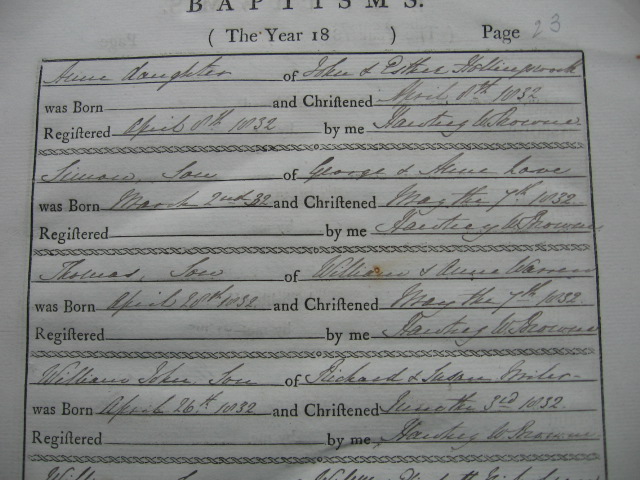 BAPTISMS.
( The Year 18 ) Page 23
Anne daughter of John & Esther Hollingsworth
was Born and Chriſtened April 8th 1832
Regiſtered April 8th 1832 by me Hawtrey W Browne
Simon, Son of George & Anne Love
was Born March 2nd 32 and Chriſtened May the 7th 1832
Regiſtered by me Hawtrey W Browne
Thomas, Son of William & Anne Warren
was Born April 28th 1832 and Chriſtened May the 7th 1832
Regiſtered by me Hawtrey W Browne
William John, Son of Richard & Susan
was Born April 26th 1832 and Chriſtened June the 3rd 1832.
Regiſtered by me Hawtrey W Browne